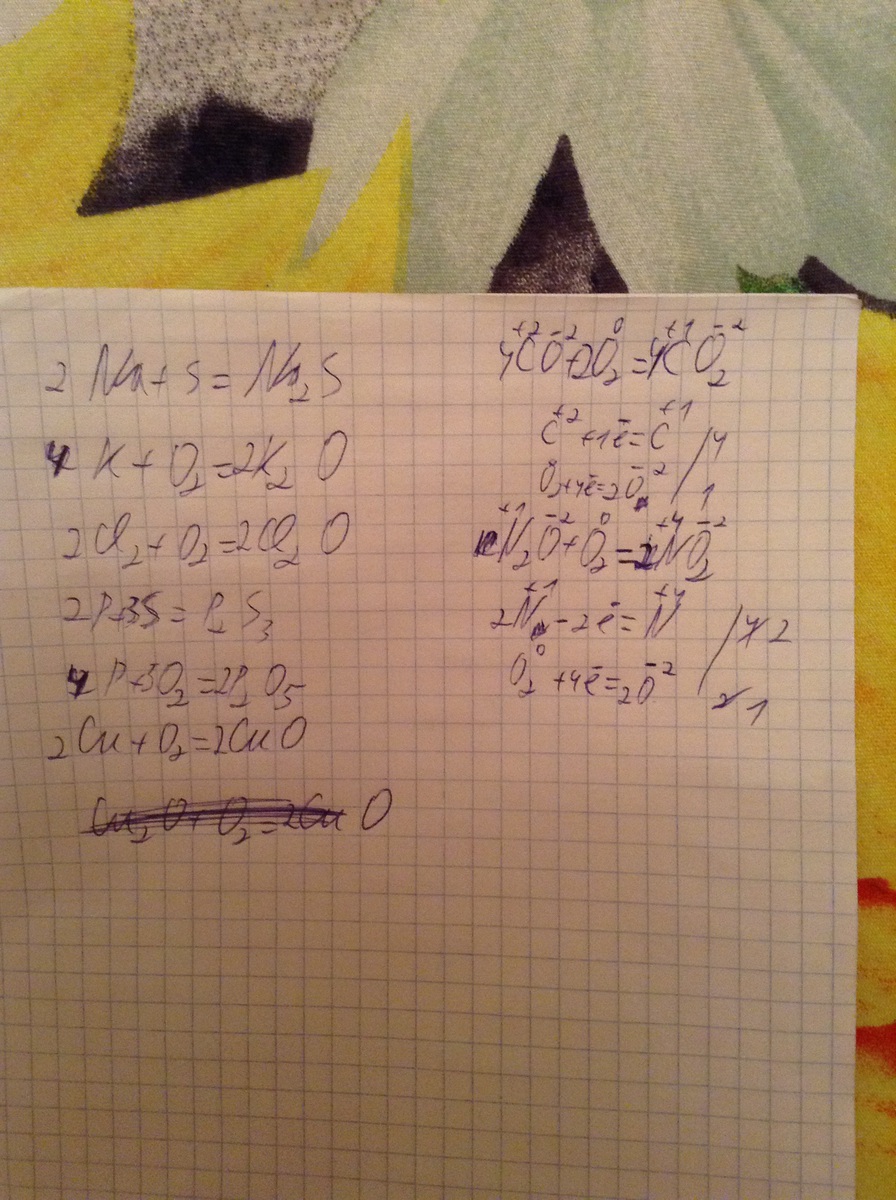 2Na + S = Na₂S
4K + O₂ = 2K₂O
2Cl₂ + O₂ = 2Cl₂O
2P+3S = P₂S₃
4P+3O₂ = 2P₂O₅
2Cu + O₂ = 2CuO
Cu₂O + O₂ = 2CuO
4C⁺²O⁻²+2O₂⁰ = 4C⁺¹O₂⁻²
C⁺² + 1ē = C⁺¹ / 4
O₂+4ē = 2O⁻² / 1
N₂⁺¹O⁻² + O₂⁰ = N⁺⁴O₂⁻²
2N⁺¹ - 2ē = N⁺⁴ / 2
O₂⁰ + 4ē = 2O⁻² / 1